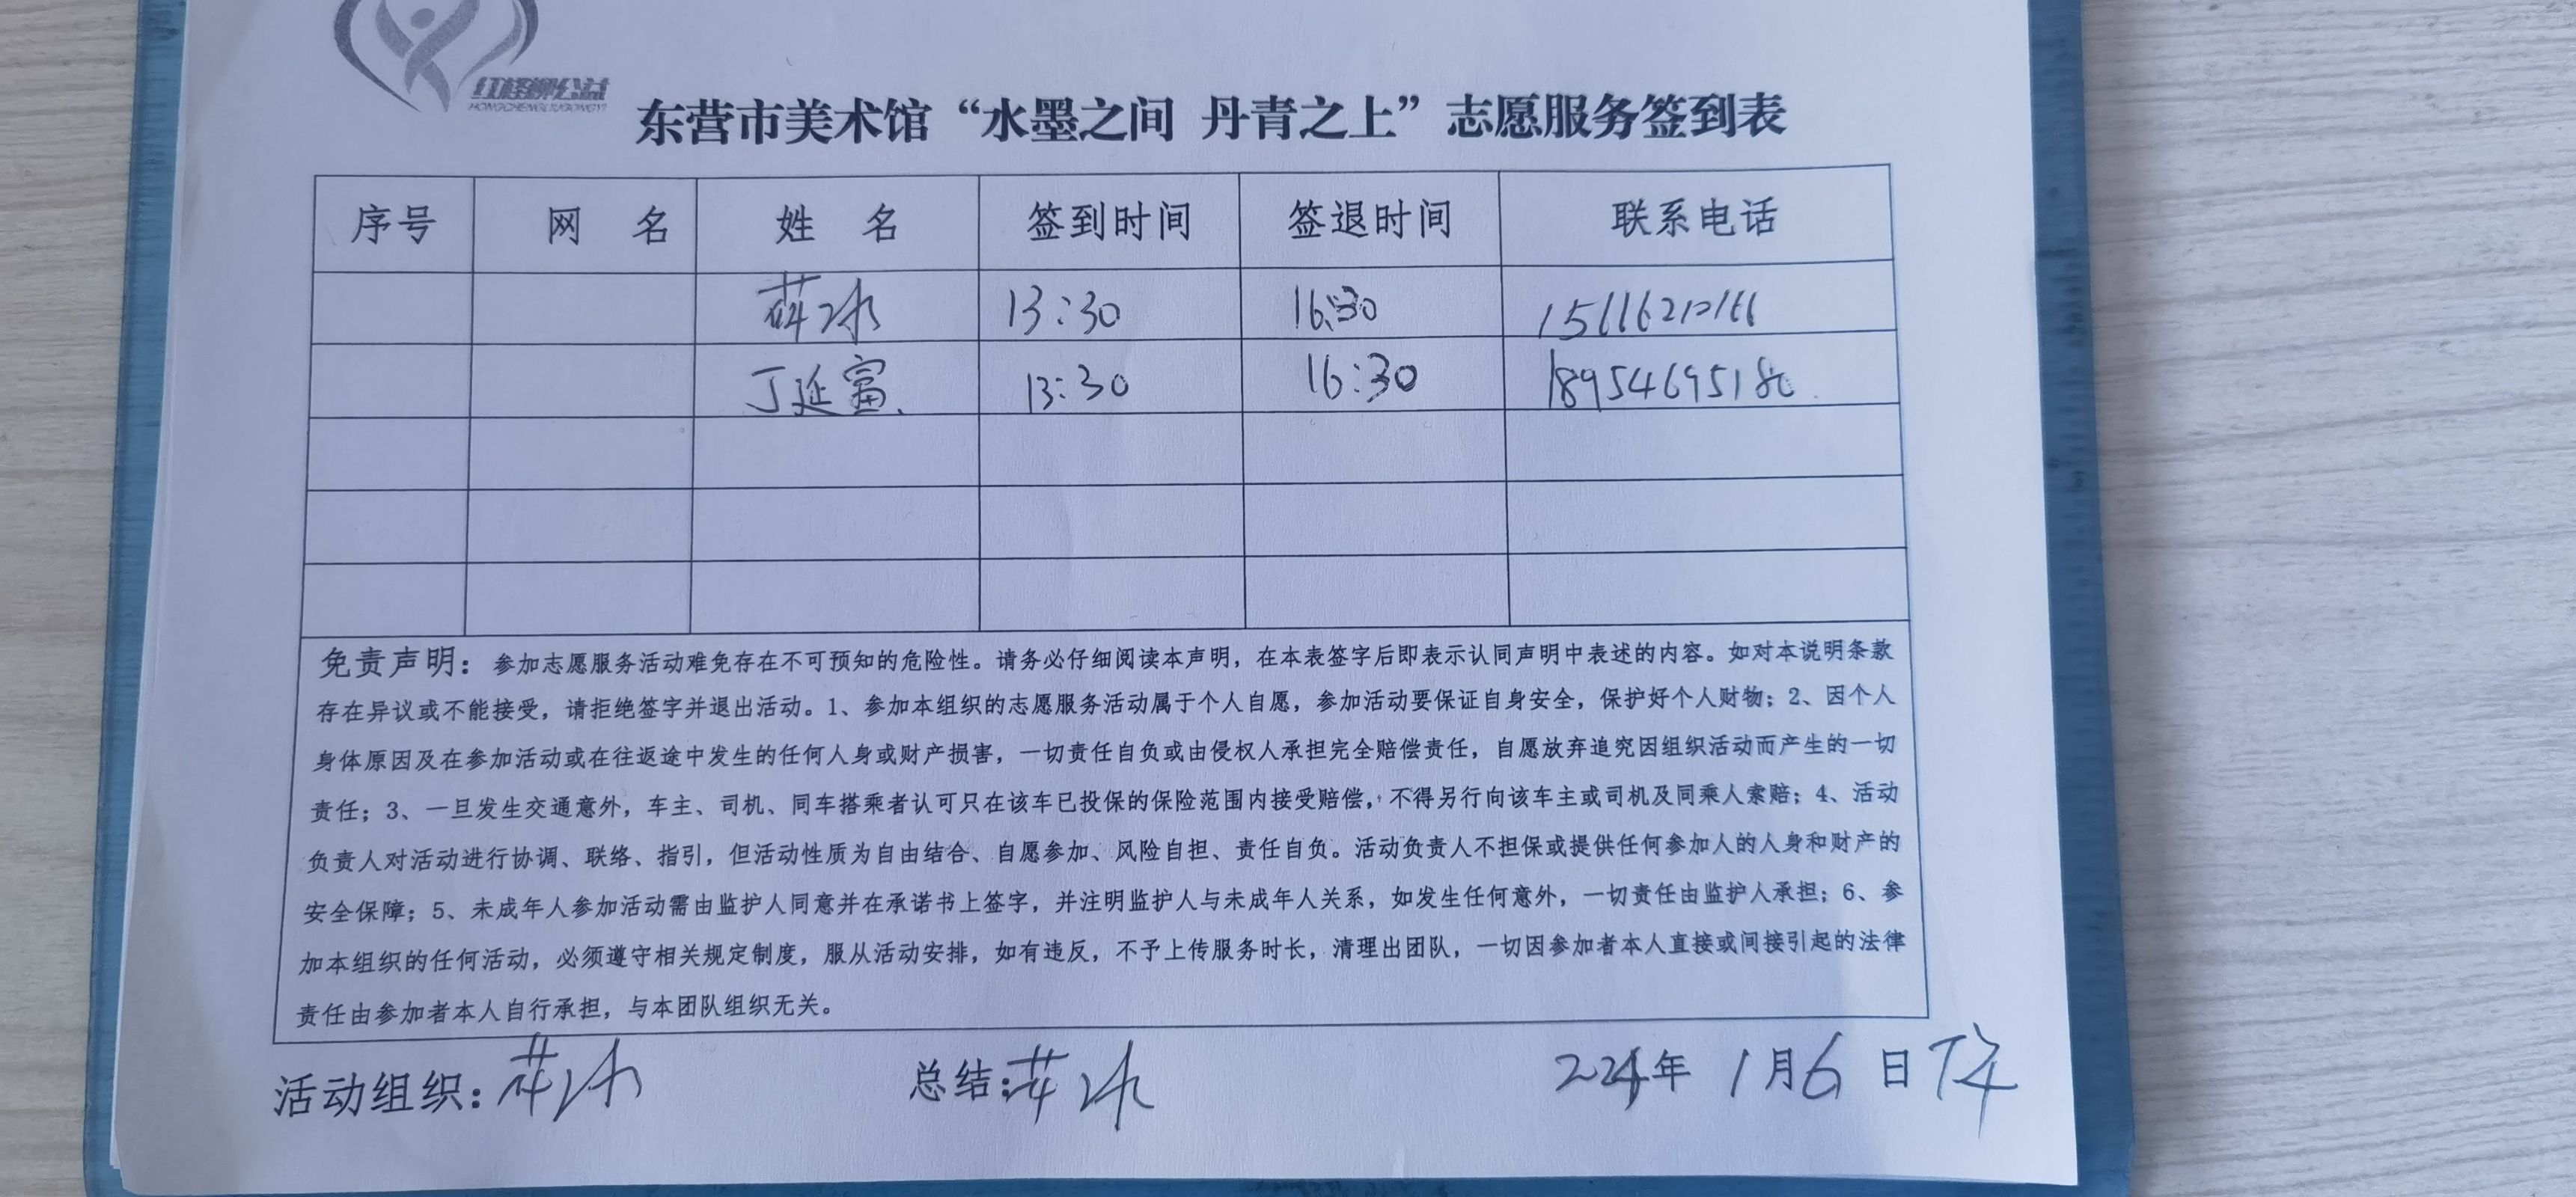 红柽柳公益
HONGCHENGLIUGONGYI
东营市美术馆“水墨之间 丹青之上”志愿服务签到表
序号 网 名 姓 名 签到时间 签退时间 联系电话
薛冰 13:30 16:30
丁延富 13:30 16:30 18954695180
免责声明：参加志愿服务活动难免存在不可预知的危险性。请务必仔细阅读本声明，在本表签字后即表示认同声明中表述的内容。如对本说明条款
存在异议或不能接受，请拒绝签字并退出活动。1、参加本组织的志愿服务活动属于个人自愿，参加活动要保证自身安全，保护好个人财物；2、因个人
身体原因及在参加活动或在往返途中发生的任何人身或财产损害，一切责任自负或由侵权人承担完全赔偿责任，自愿放弃追究因组织活动而产生的一切
责任；3、一旦发生交通意外，车主、司机、同车搭乘者认可只在该车已投保的保险范围内接受赔偿，不得另行向该车主或司机及同乘人索赔；4、活动
负责人对活动进行协调、联络、指引，但活动性质为自由结合、自愿参加、风险自担、责任自负。活动负责人不担保或提供任何参加人的人身和财产的
安全保障；5、未成年人参加活动需由监护人同意并在承诺书上签字，并注明监护人与未成年人关系，如发生任何意外，一切责任由监护人承担；6、参
加本组织的任何活动，必须遵守相关规定制度，服从活动安排，如有违反，不予上传服务时长，清理出团队，一切因参加者本人直接或间接引起的法律
责任由参加者本人自行承担，与本团队组织无关。
活动组织：薛冰 总结：薛冰 2024年 1月6日下午